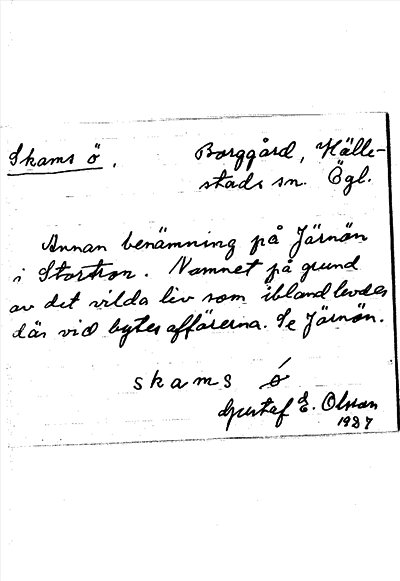 Skams ö. Borggård, Hälle-
stads sn. Ögl.
Annan benämning på Järnön
i Stortron. Namnet på grund
av det vilda liv som ibland levdes
där vid bytesaffärerna. Se Järnön.
skams ö
Gustaf E. Olsson
1927